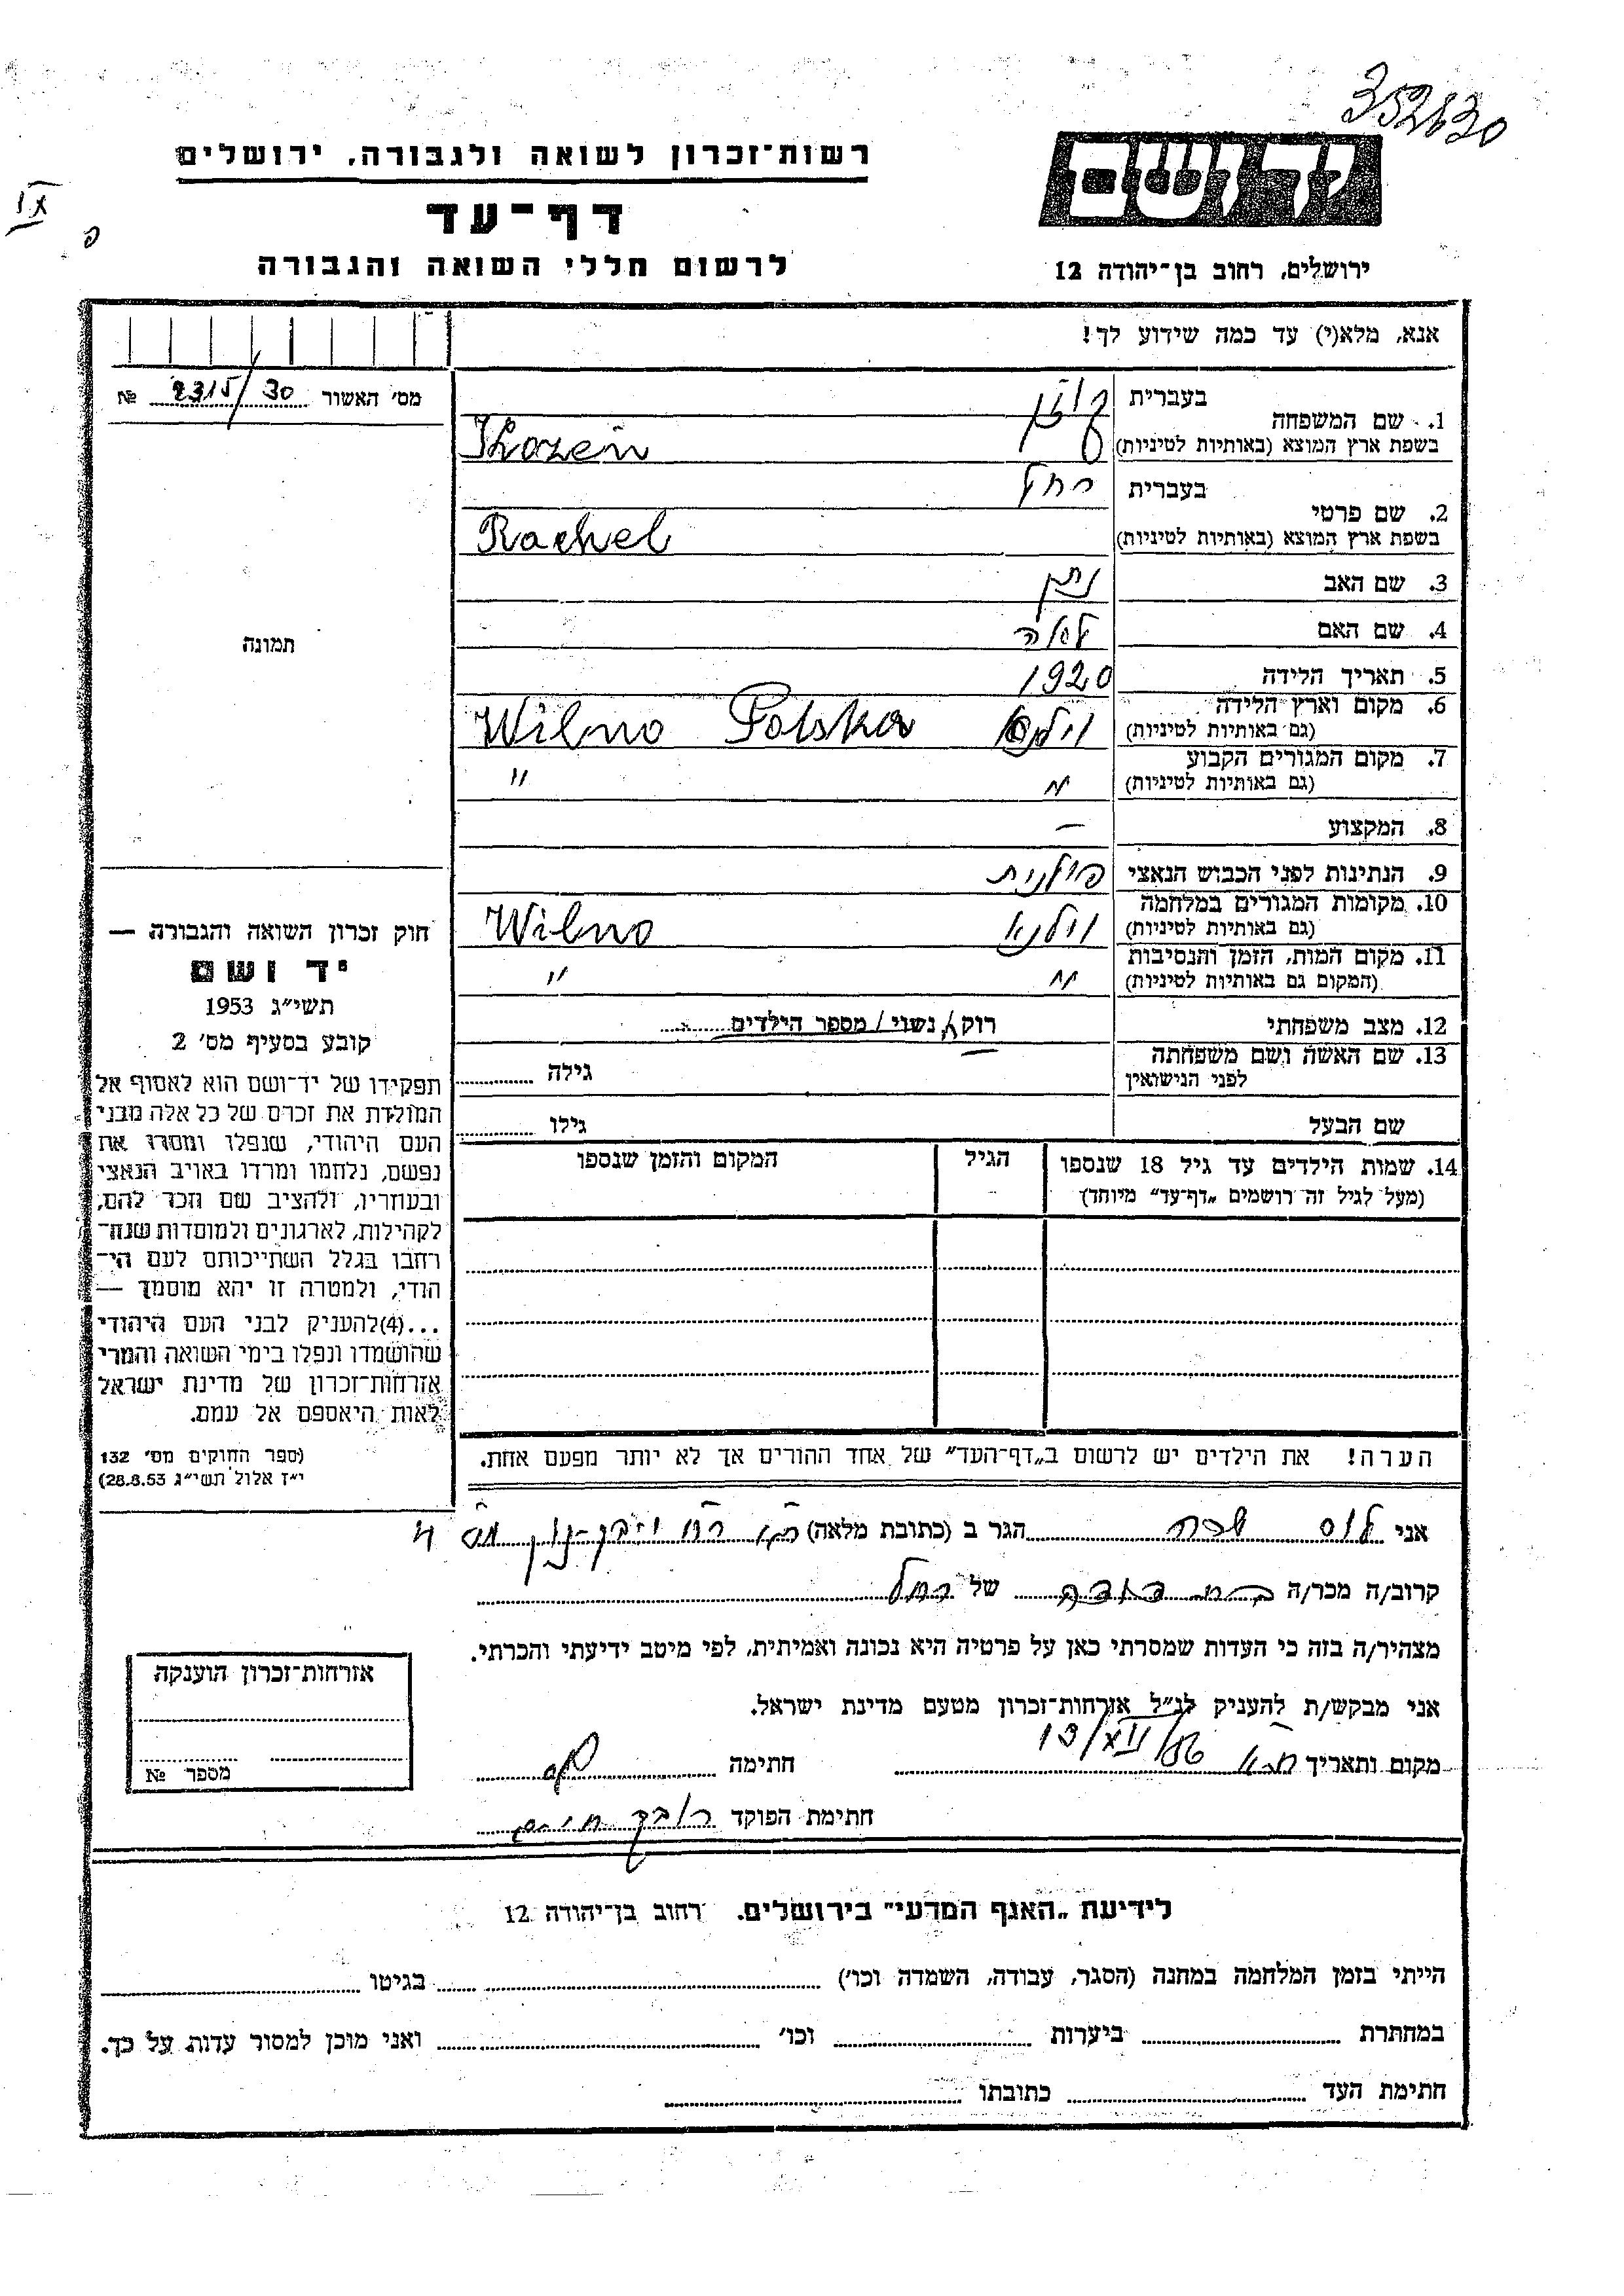 352630
רשות־זכרון לשואה ולגבורה, ירושלים
יד ושם
דף־עד
לרשום חללי השואה והגבורה
ירושלים, רחוב בן־יהודה 12
אנא, מלא(י) עד כמה שידוע לך!
מס׳ האשור 2315/30 №
1. שם המשפחה
בעברית
בשפת ארץ המוצא (באותיות לטיניות)
2. שם פרטי
בעברית רחל
בשפת ארץ המוצא (באותיות לטיניות) Rachel
3. שם האב נתן
4. שם האם
5. תאריך הלידה 1920
6. מקום וארץ הלידה
(גם באותיות לטיניות) וילנא Wilno Polska
7. מקום המגורים הקבוע
(גם באותיות לטיניות) " "
8. המקצוע —
9. הנתינות לפני הכבוש הנאצי פולנית
10. מקומות המגורים במלחמה
(גם באותיות לטיניות) וילנא Wilno
11. מקום המות, הזמן והנסיבות
(המקום גם באותיות לטיניות) " "
12. מצב משפחתי רוק/ נשוי / מספר הילדים
13. שם האשה ושם משפחתה
לפני הנישואין — גילה
שם הבעל גילו
14. שמות הילדים עד גיל 18 שנספו
(מעל לגיל זה רושמים „דף־עד״ מיוחד)
הגיל
המקום והזמן שנספו
הערה! את הילדים יש לרשום ב„דף־העד״ של אחד ההורים אך לא יותר מפעם אחת.
תמונה
חוק זכרון השואה והגבורה —
יד ושם
תשי״ג 1953
קובע בסעיף מס׳ 2
תפקידו של יד־ושם הוא לאסוף אל
המולדת את זכרם של כל אלה מבני
העם היהודי, שנפלו ומסרו את
נפשם, נלחמו ומרדו באויב הנאצי
ובעוזריו, ולהציב שם וזכר להם,
לקהילות, לארגונים ולמוסדות שנח־
רחבו בגלל השתייכותם לעם הי־
הודי, ולמטרה זו יהא מוסמך —
...(4)להעניק לבני העם היהודי
שהושמדו ונפלו בימי השואה והמרי
אזרחות־זכרון של מדינת ישראל
לאות היאספם אל עמם.
(ספר החוקים מס׳ 132
י״ז אלול תשי״ג 28.8.53)
אני הגר ב (כתובת מלאה)
קרוב/ה מכר/ה בת דודה של רחל
מצהיר/ה בזה כי העדות שמסרתי כאן על פרטיה היא נכונה ואמיתית, לפי מיטב ידיעתי והכרתי.
אני מבקש/ת להעניק לנ״ל אזרחות־זכרון מטעם מדינת ישראל.
מקום ותאריך 13/XII/56 חתימה
חתימת הפוקד
אזרחות־זכרון הוענקה
מספר №
לידיעת „האגף המדעי״ בירושלים. רחוב בן־יהודה 12
הייתי בזמן המלחמה במחנה (הסגר, עבודה, השמדה וכו׳) בגיטו
במחתרת ביערות וכו׳ ואני מוכן למסור עדות על כך.
חתימת העד כתובתו